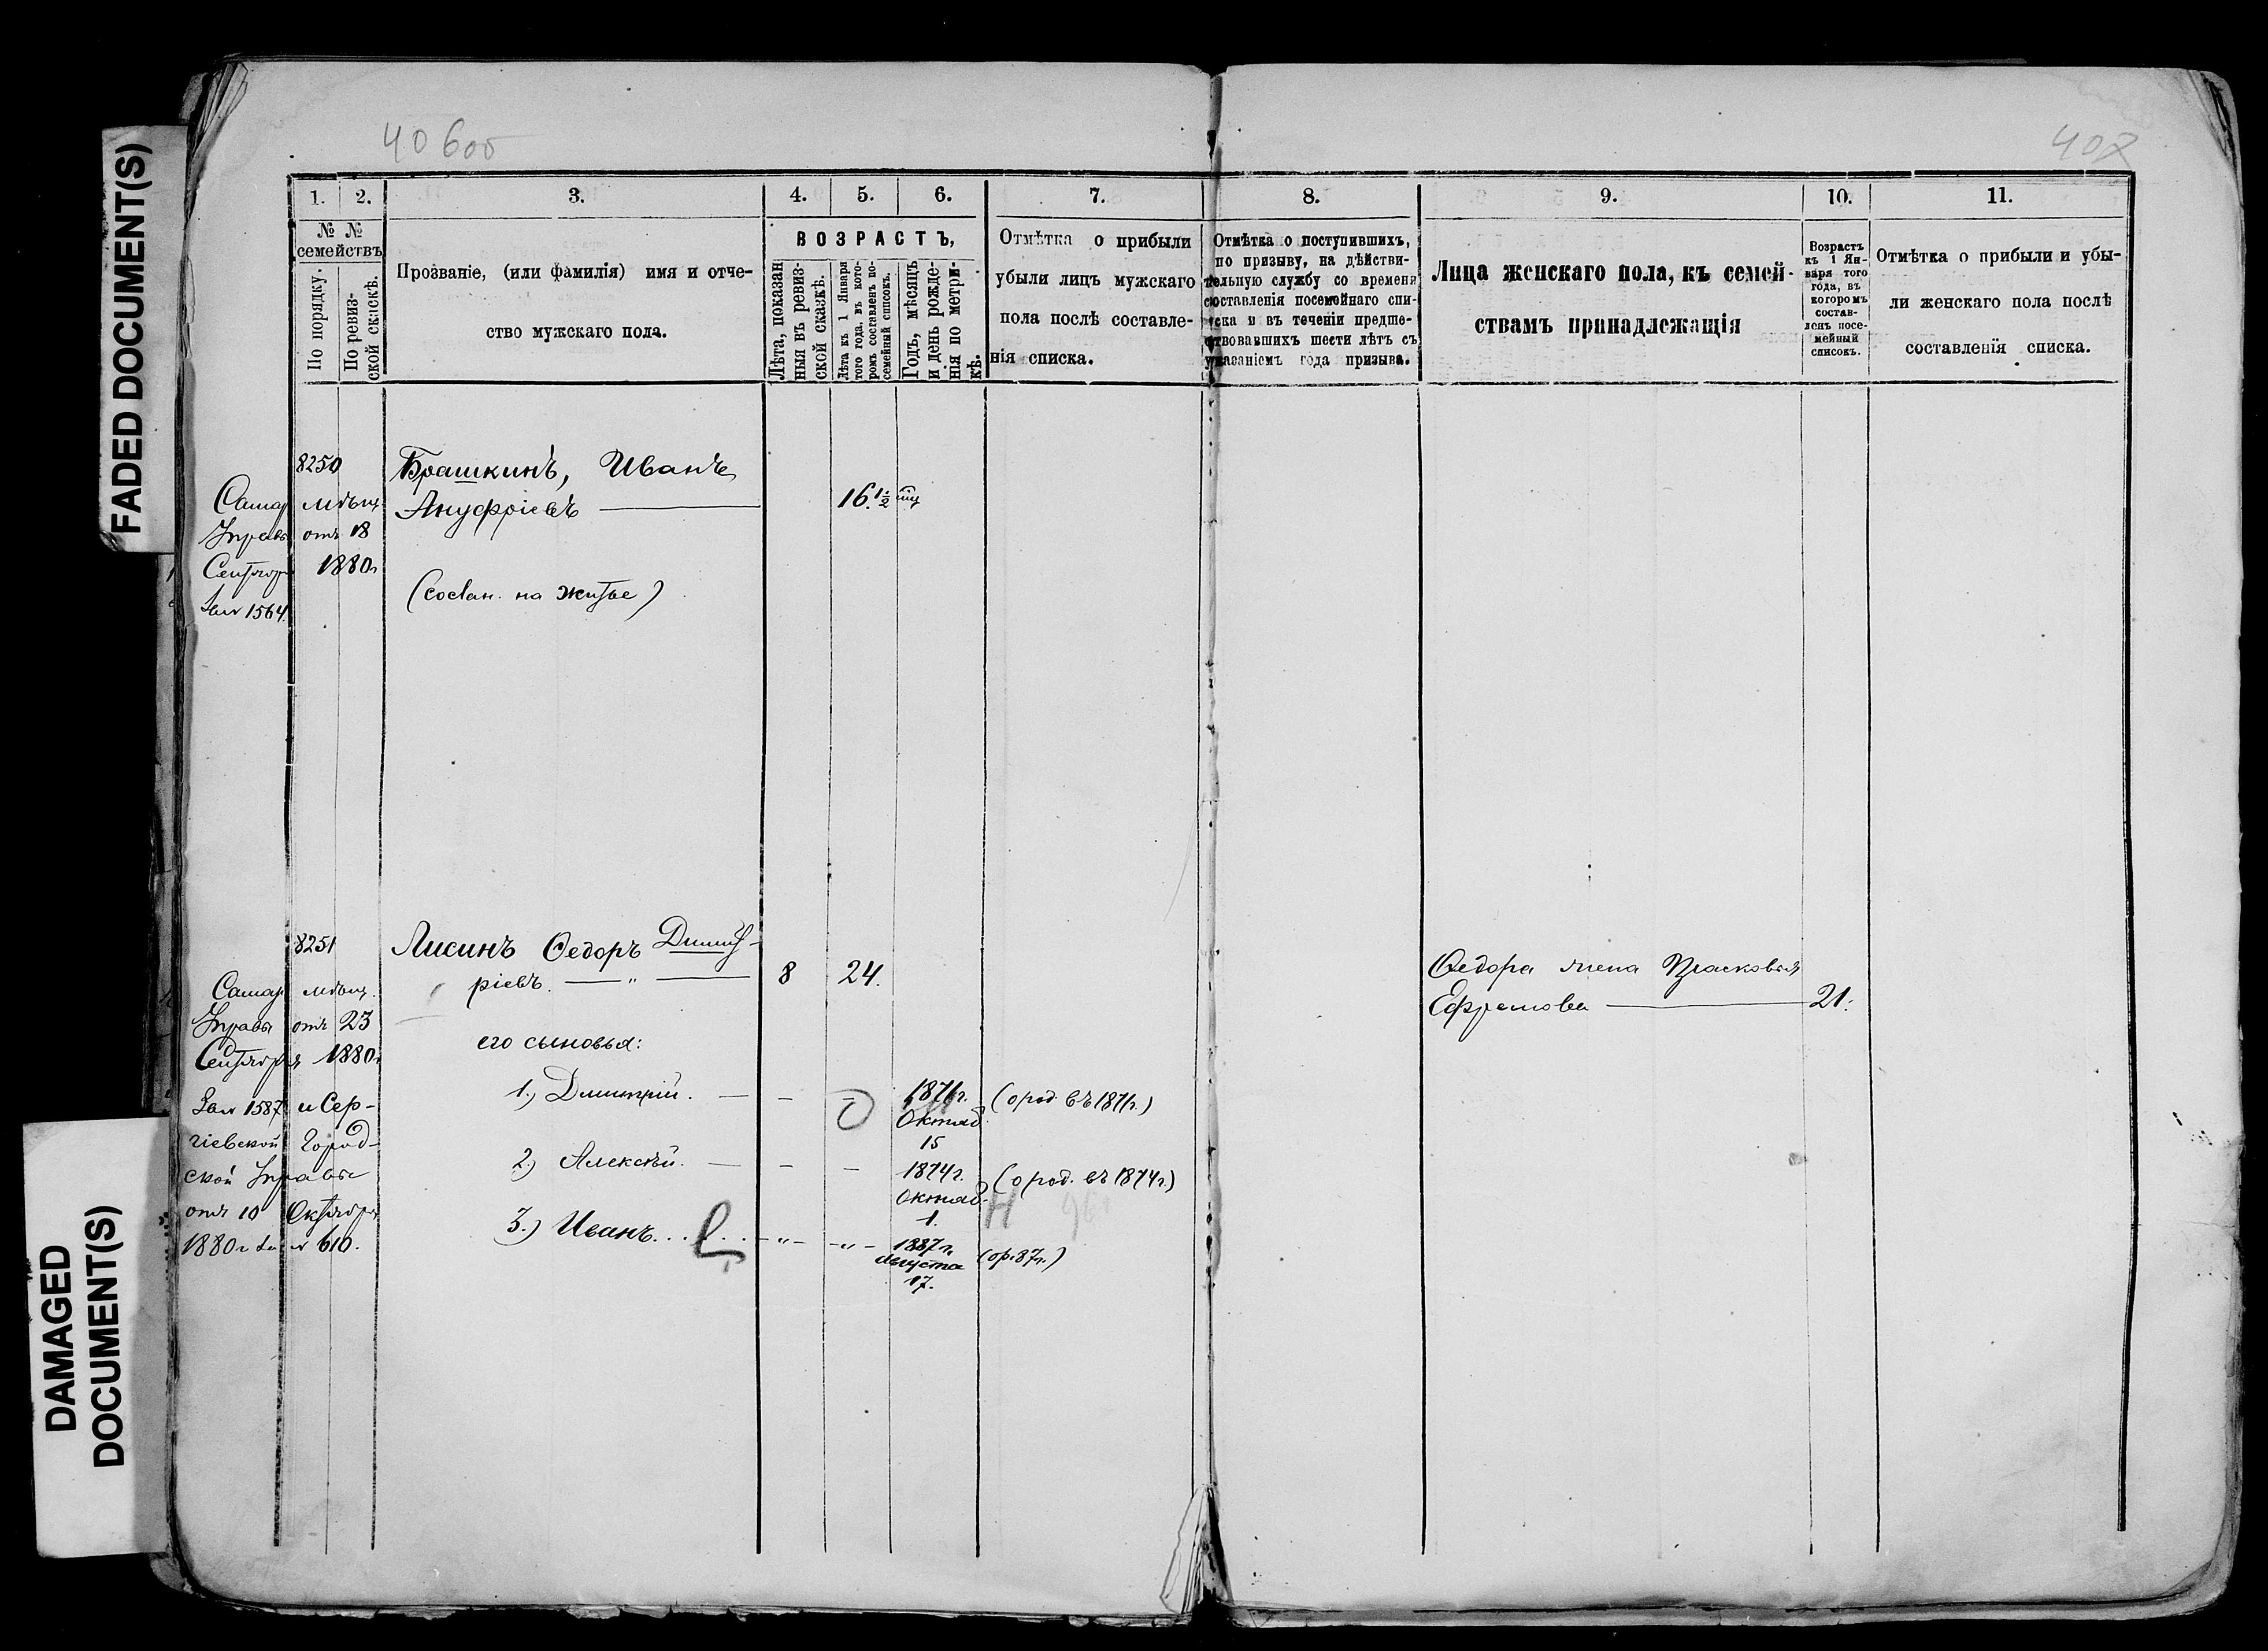 FADED DOCUMENT(S)
DAMAGED
DOCUMENT(S)
40 боб
402
1.
2.
3.
4.
5.
6.
7.
8.
9.
10.
11.
№ №
семействъ
По порядку.
По ревиз-
ской сказкѣ.
Прозваніе, (или фамилія) имя и отче-
ство мужскаго пола.
ВОЗРАСТЪ,
Лѣта, показан
ныя въ ревиз-
ской сказкѣ.
Лѣта къ 1 Января
того года, въ кото-
ромъ составленъ по-
семейный списокъ.
Годъ, мѣсяцъ
и день рожде-
нія по метри-
кѣ.
Отмѣтка о прибыли
убыли лицъ мужскаго
пола послѣ составле-
нія списка.
Отмѣтка о поступившихъ,
по призыву, на дѣйстви-
тельную службу со времени
составленія посемейнаго спи-
ска и въ теченіи предше-
ствовавшихъ шести лѣтъ съ
указаніемъ года призыва.
Лица женскаго пола, къ семей-
ствамъ принадлежащія
Возрастъ
къ 1 Ян-
варя того
года, въ
которомъ
состав-
ленъ посе-
мейный
списокъ.
Отмѣтка о прибыли и убы-
ли женскаго пола послѣ
составленія списка.
8250
Брашкинъ, Иванъ
Ануфріевъ
16 1/2
Самар мѣщ.
Управы отъ 18
Сентября 1880г
За № 1564.
(сослан. на житье)
8251
Лисинъ Ѳедоръ Димит-
ріевъ.
8
24.
Ѳедора жена Прасковья
Ефремова
21.
Самар мѣщ.
Управы отъ 23
Сентября 1880г
За № 1587 и Сер-
гіевской Город-
ской Управы
отъ 10 Октября
1880г За № 610.
его сыновья:
1.) Дмитрій.
1871г.
Октяб.
15
(о род въ 1871г.)
2.) Алексѣй.
1874г.
Октяб.
1.
(о род. въ 1874г.)
3.) Иванъ
1887г.
Августа
17.
(о р. 87г.)